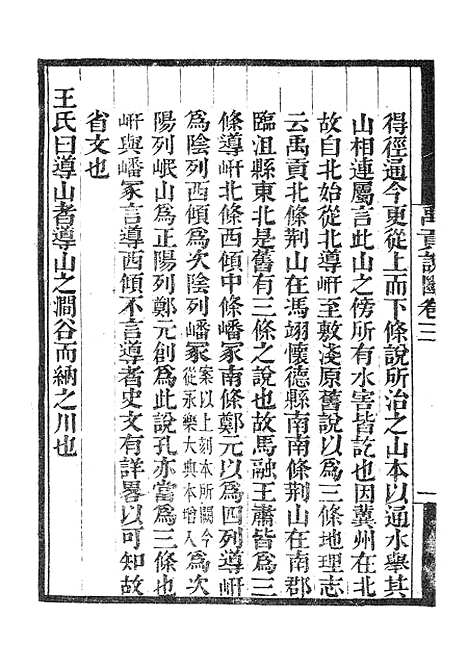 禹貢說斷卷三
一
得徑通今更從上而下條說所治之山本以通水舉其
山相連屬言此山之傍所有水害皆訖也因冀州在北
故自北始從北導岍至敷淺原舊說以為三條地理志
云禹貢北條荆山在馮翊懷德縣南南條荆山在南郡
臨沮縣東北是舊有三條之說也故馬融王肅皆為三
條導岍北條西傾中條嶓冢南條鄭元以為四列導岍
為陰列西傾為次陰列嶓冢案以上刻本所闕今從永樂大典本增入為次
陽列岷山為正陽列鄭元創為此說孔亦當為三條也
岍與嶓冢言導西傾不言導者史文有詳畧以可知故
省文也
王氏曰導山者導山之澗谷而納之川也